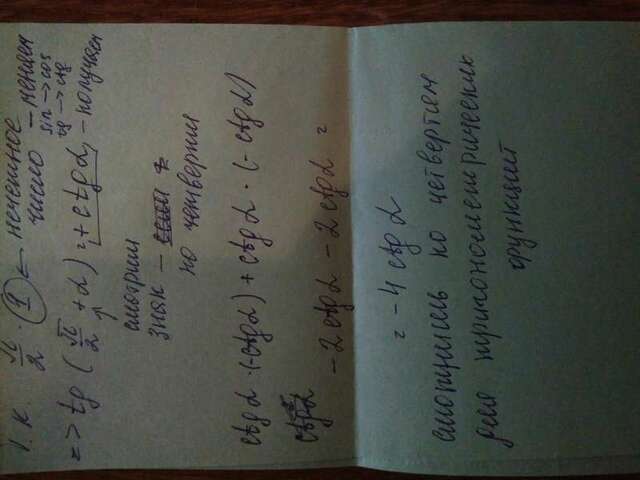 т.к. π/2 · 1 ← нечетное
число – меняем
sin → cos
tg → ctg
=> tg (π/2 + α) = + ctg α – получаем
смотрим
знак –
по четвертям
ctg α · (-ctg α) + ctg α · (- ctg α)
ctg α
- 2 ctg α - 2 ctg α =
= - 4 ctg α
смотришь по четвертям
для тригонометрических
функций